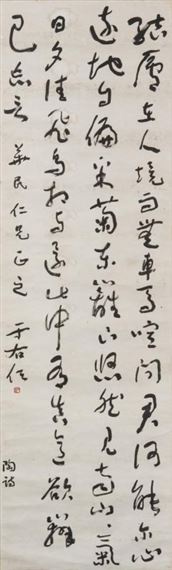 結廬在人境而無車馬喧問君何能爾心
遠地自偏采菊東籬下悠然見南山〻氣
日夕佳飛鳥相與還此中有真意欲辨
已忘言 華民仁兄正之 于右任
陶詩